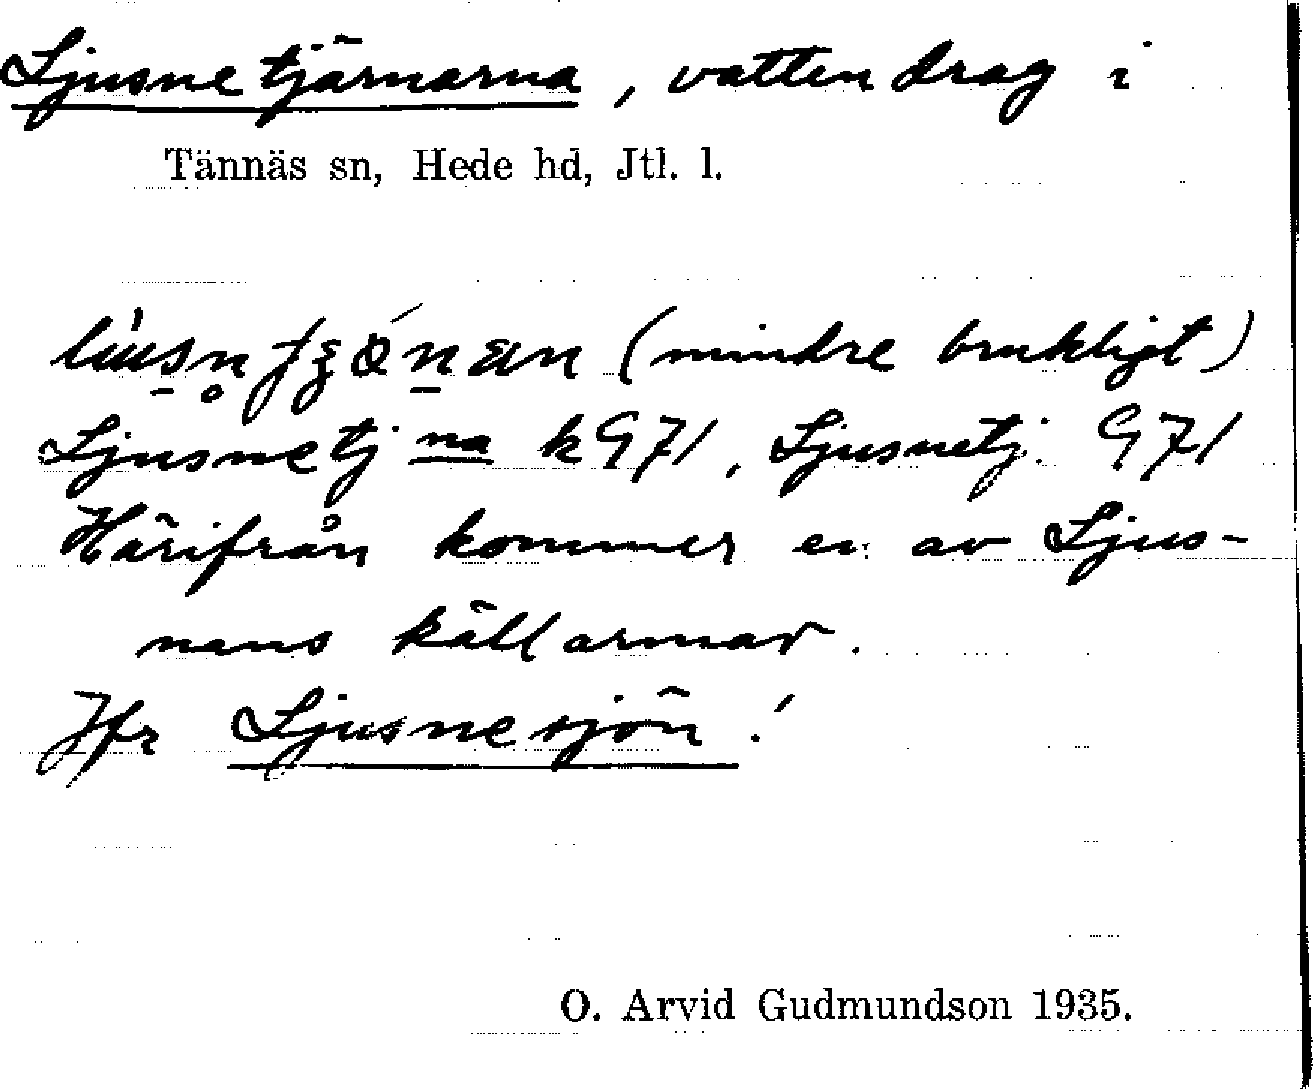 Ljusnetjärnarna, vattendrag i
Tännäs sn, Hede hd, Jtl. l.
(mindre brukligt)
Ljusnetj na k G 71, Ljusnetj. G 71
Härifrån kommer en av Ljus-
nans källarmar.
Jfr Ljusnesjön!
O. Arvid Gudmundson 1935.